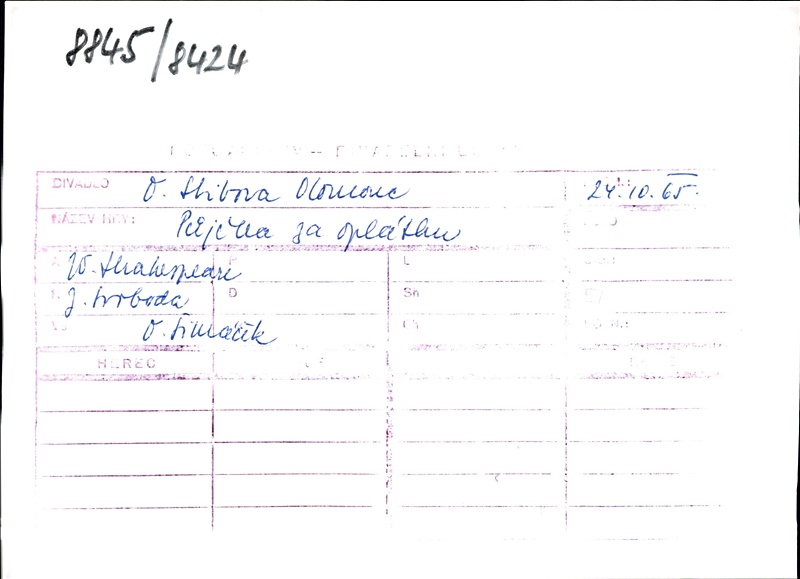 8845/8424
DIVADLO O. Stibora Olomouc 24. 10. 65.
NÁZEV HRY: Půjčka za oplátku
W. Shakespeare P L
J. Svoboda D Sn
O. Šimáček
HEREC